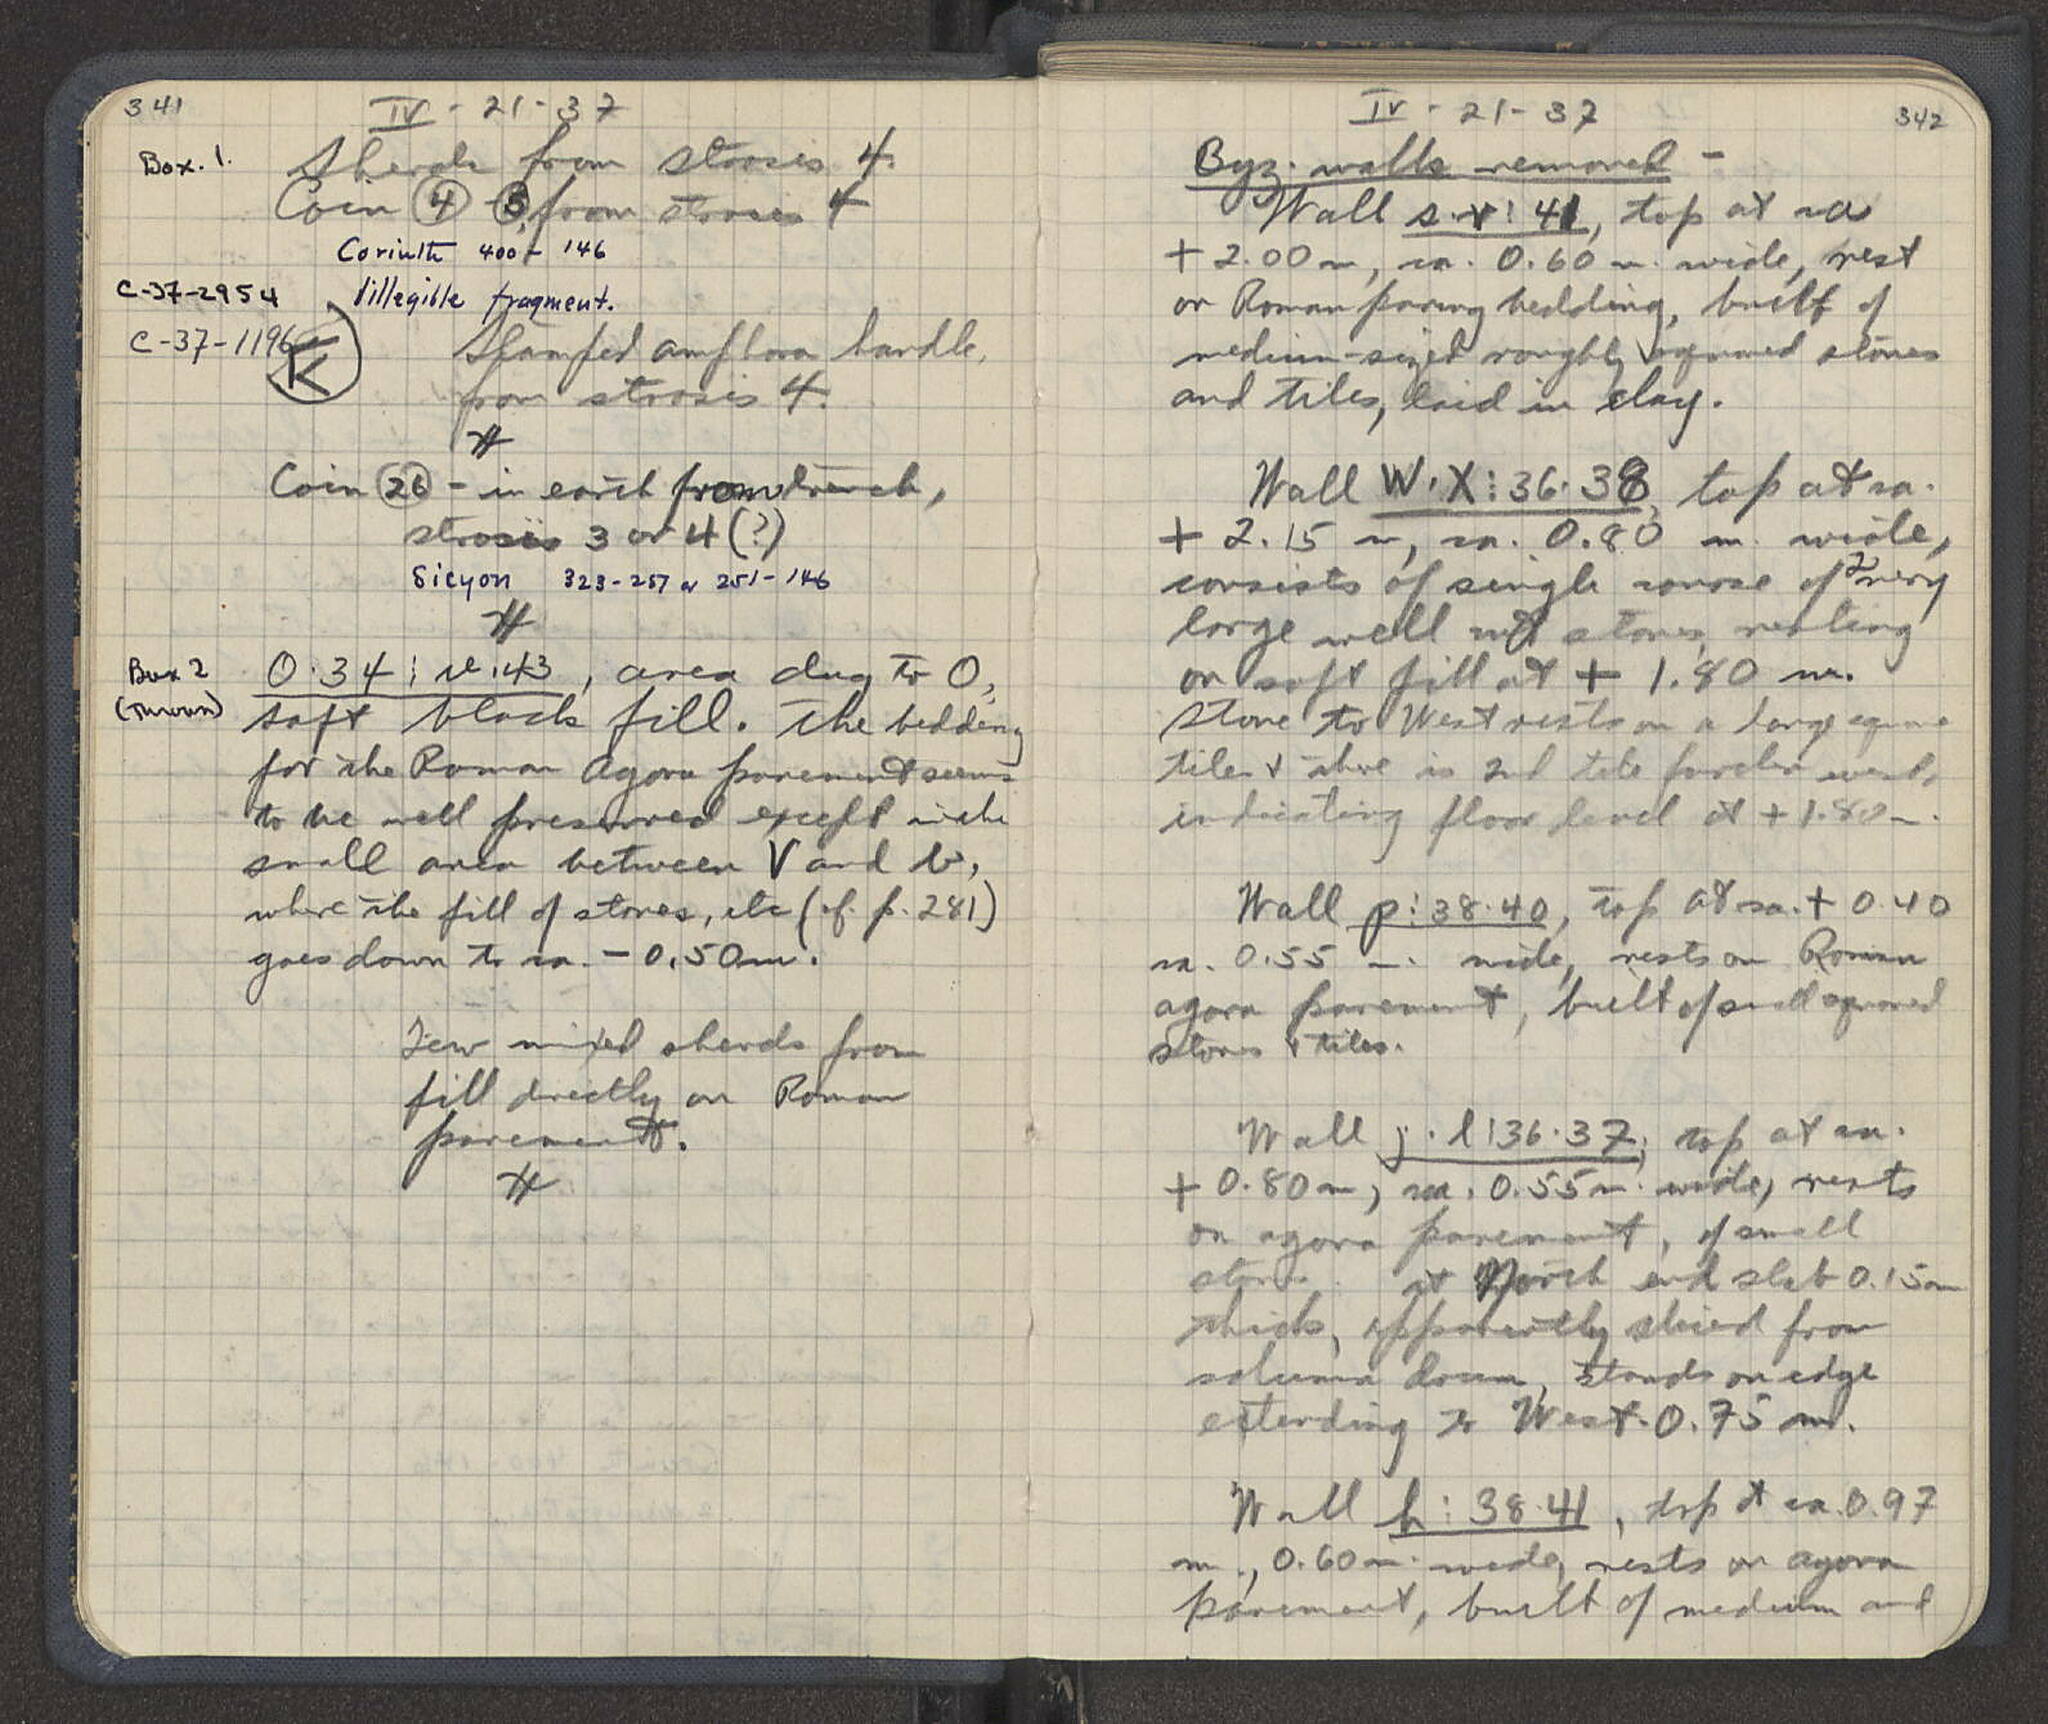 341
IV - 21 - 37
Box. 1.
Sherds from strosis 4.
Coin (4) (5), from strosis 4
Corinth 400 - 146
C-37-2954
1 illegible fragment.
C-37-1196
K
Stamped amphora handle,
from strosis 4.
#
Coin (26) - in earth from trench,
strosis 3 or 4 (?)
Sicyon 323-251 or 251-146
#
Box 2
(thrown)
O·34 : v·43, area dug to O,
soft black fill. The bedding
for the Roman Agora pavement seems
to be well preserved except in the
small area between V and b,
where the fill of stones, etc (cf. p. 281)
goes down to ca. - 0.50m.
Few mixed sherds from
fill directly on Roman
pavement.
#
IV - 21 - 37
342
Byz. walls removed -
Wall s·v : 41, top at ca
+ 2.00 m, ca. 0.60 m. wide, rest
on Roman paving bedding, built of
medium-sized roughly squared stones
and tiles, laid in clay.
Wall W·X : 36·38, top at ca.
+ 2.15 m, ca. 0.80 m. wide,
consists of single course of 2 very
large well cut stones, resting
on soft fill at + 1.80 m.
Stone to West rests on a large square
tile & there is 2nd tile farther west,
indicating floor level at + 1.80 m.
Wall p : 38·40, top at ca. + 0.40
ca. 0.55 m. wide, rests on Roman
agora pavement, built of small squared
stones & tiles.
Wall j·l : 36·37, top at ca.
+ 0.80 m, ca. 0.55 m. wide, rests
on agora pavement, of small
stones. at North end slab 0.15 m
thick, apparently sliced from
column drum, stands on edge
extending to West. 0.75 m.
Wall h : 38·41, top at ca. 0.97
m., 0.60 m. wide, rests on agora
pavement, built of medium and